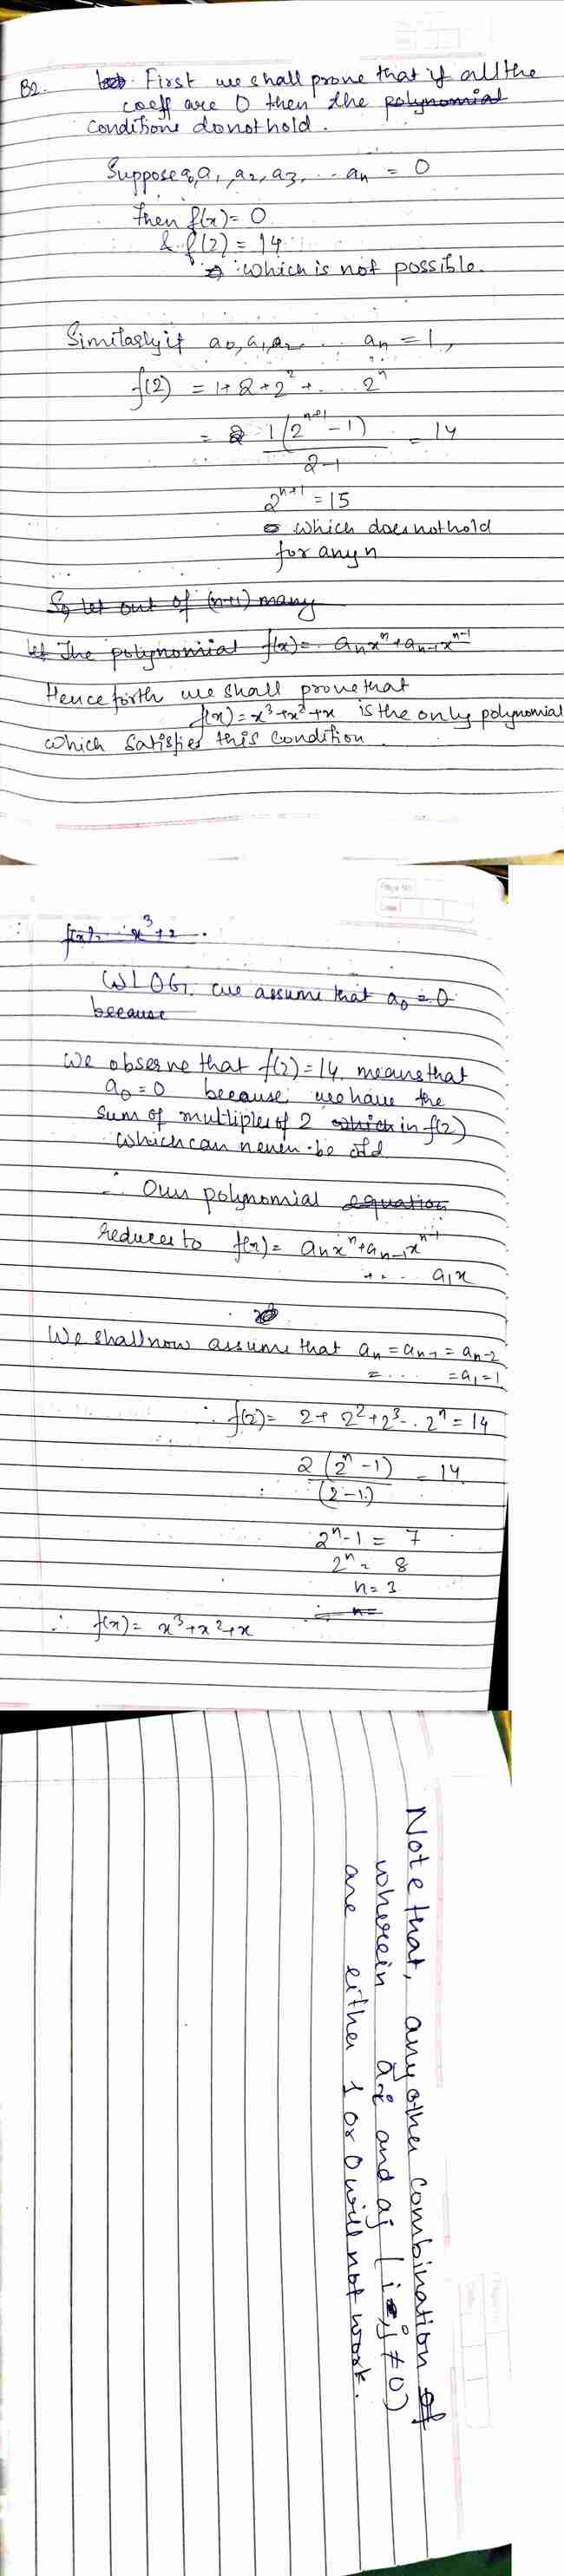 B2. First we shall prove that if all the
coeff are 0 then the polynomial
conditions donot hold.
Suppose a₀, a₁, a₂, a₃, ... aₙ = 0
then f(x) = 0
& f(2) = 14
which is not possible.
Similarly if a₀, a₁, a₂ ... aₙ = 1,
f(2) = 1 + 2 + 2² + ... 2ⁿ
= 1(2ⁿ⁺¹ - 1) / 2-1 = 14
2ⁿ⁺¹ = 15
which does not hold
for any n
So let out of (n+1) many
let The polynomial f(x) = aₙxⁿ + aₙ₋₁xⁿ⁻¹
Henceforth we shall prove that
f(x) = x³ + x² + x is the only polynomial
which satisfies this condition.
f(x) = x³ + x.
WLOG. we assume that a₀ = 0
because
We observe that f(2) = 14 means that
a₀ = 0 because we have the
sum of multiples of 2 which in f(2)
which can never be odd
∴ Our polynomial equation
reduces to f(x) = aₙxⁿ + aₙ₋₁xⁿ⁻¹
+ ... a₁x
We shall now assume that aₙ = aₙ₋₁ = aₙ₋₂
= ... = a₁ = 1
∴ f(2) = 2 + 2² + 2³ .. 2ⁿ = 14
2(2ⁿ - 1) / (2-1) = 14
2ⁿ - 1 = 7
2ⁿ = 8
n = 3
∴ n =
∴ f(x) = x³ + x² + x
Note that, any other combination of
wherein aᵢ and aⱼ (i, j ≠ 0)
are either 1 or 0 will not work.